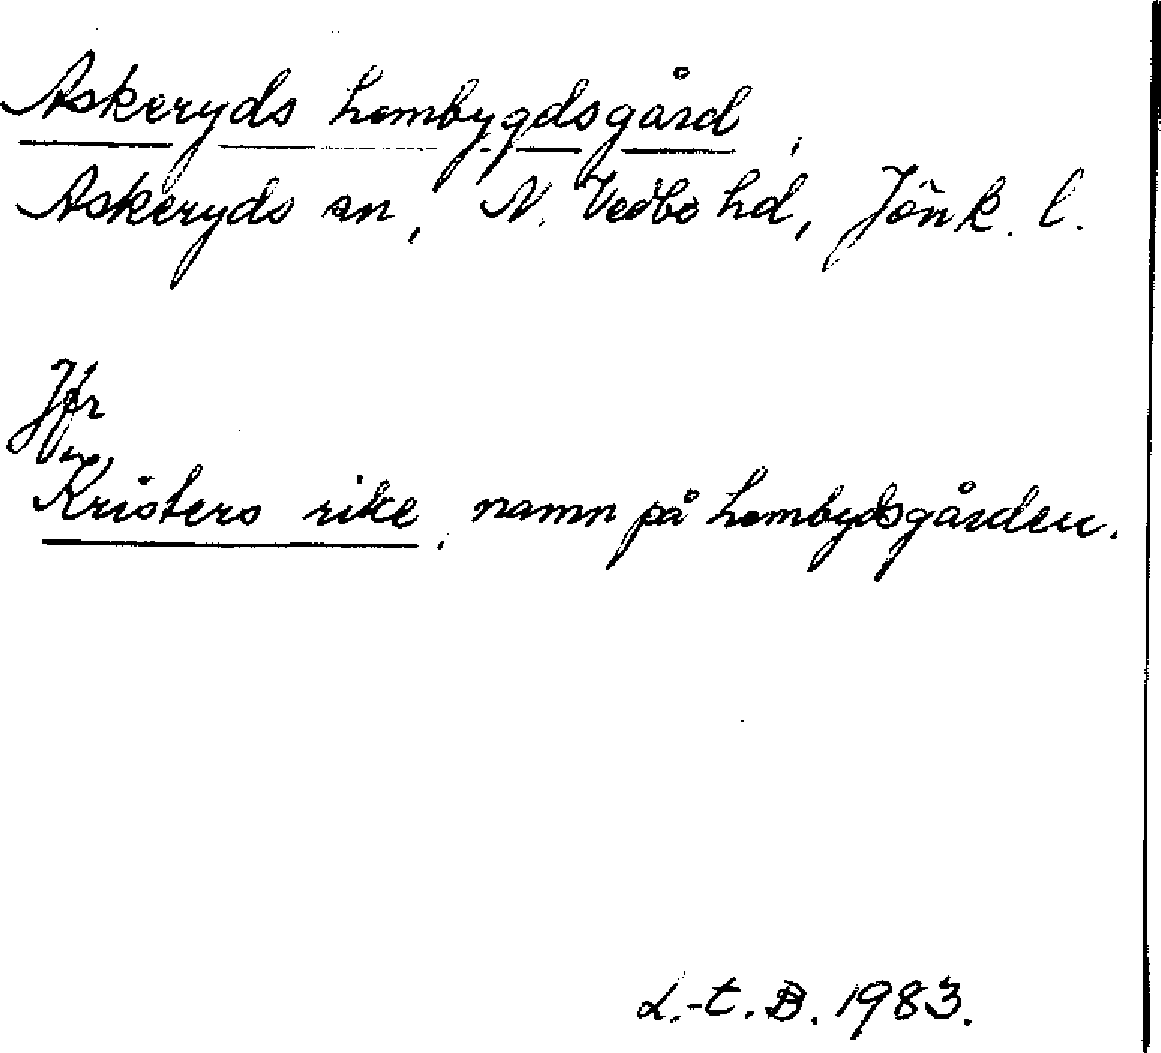 Askeryds hembygdsgård,
Askeryds sn, N. Vedbo hd, Jönk. l.
Jfr
Kristers rike, namn på hembydsgården.
L.-t. B. 1983.